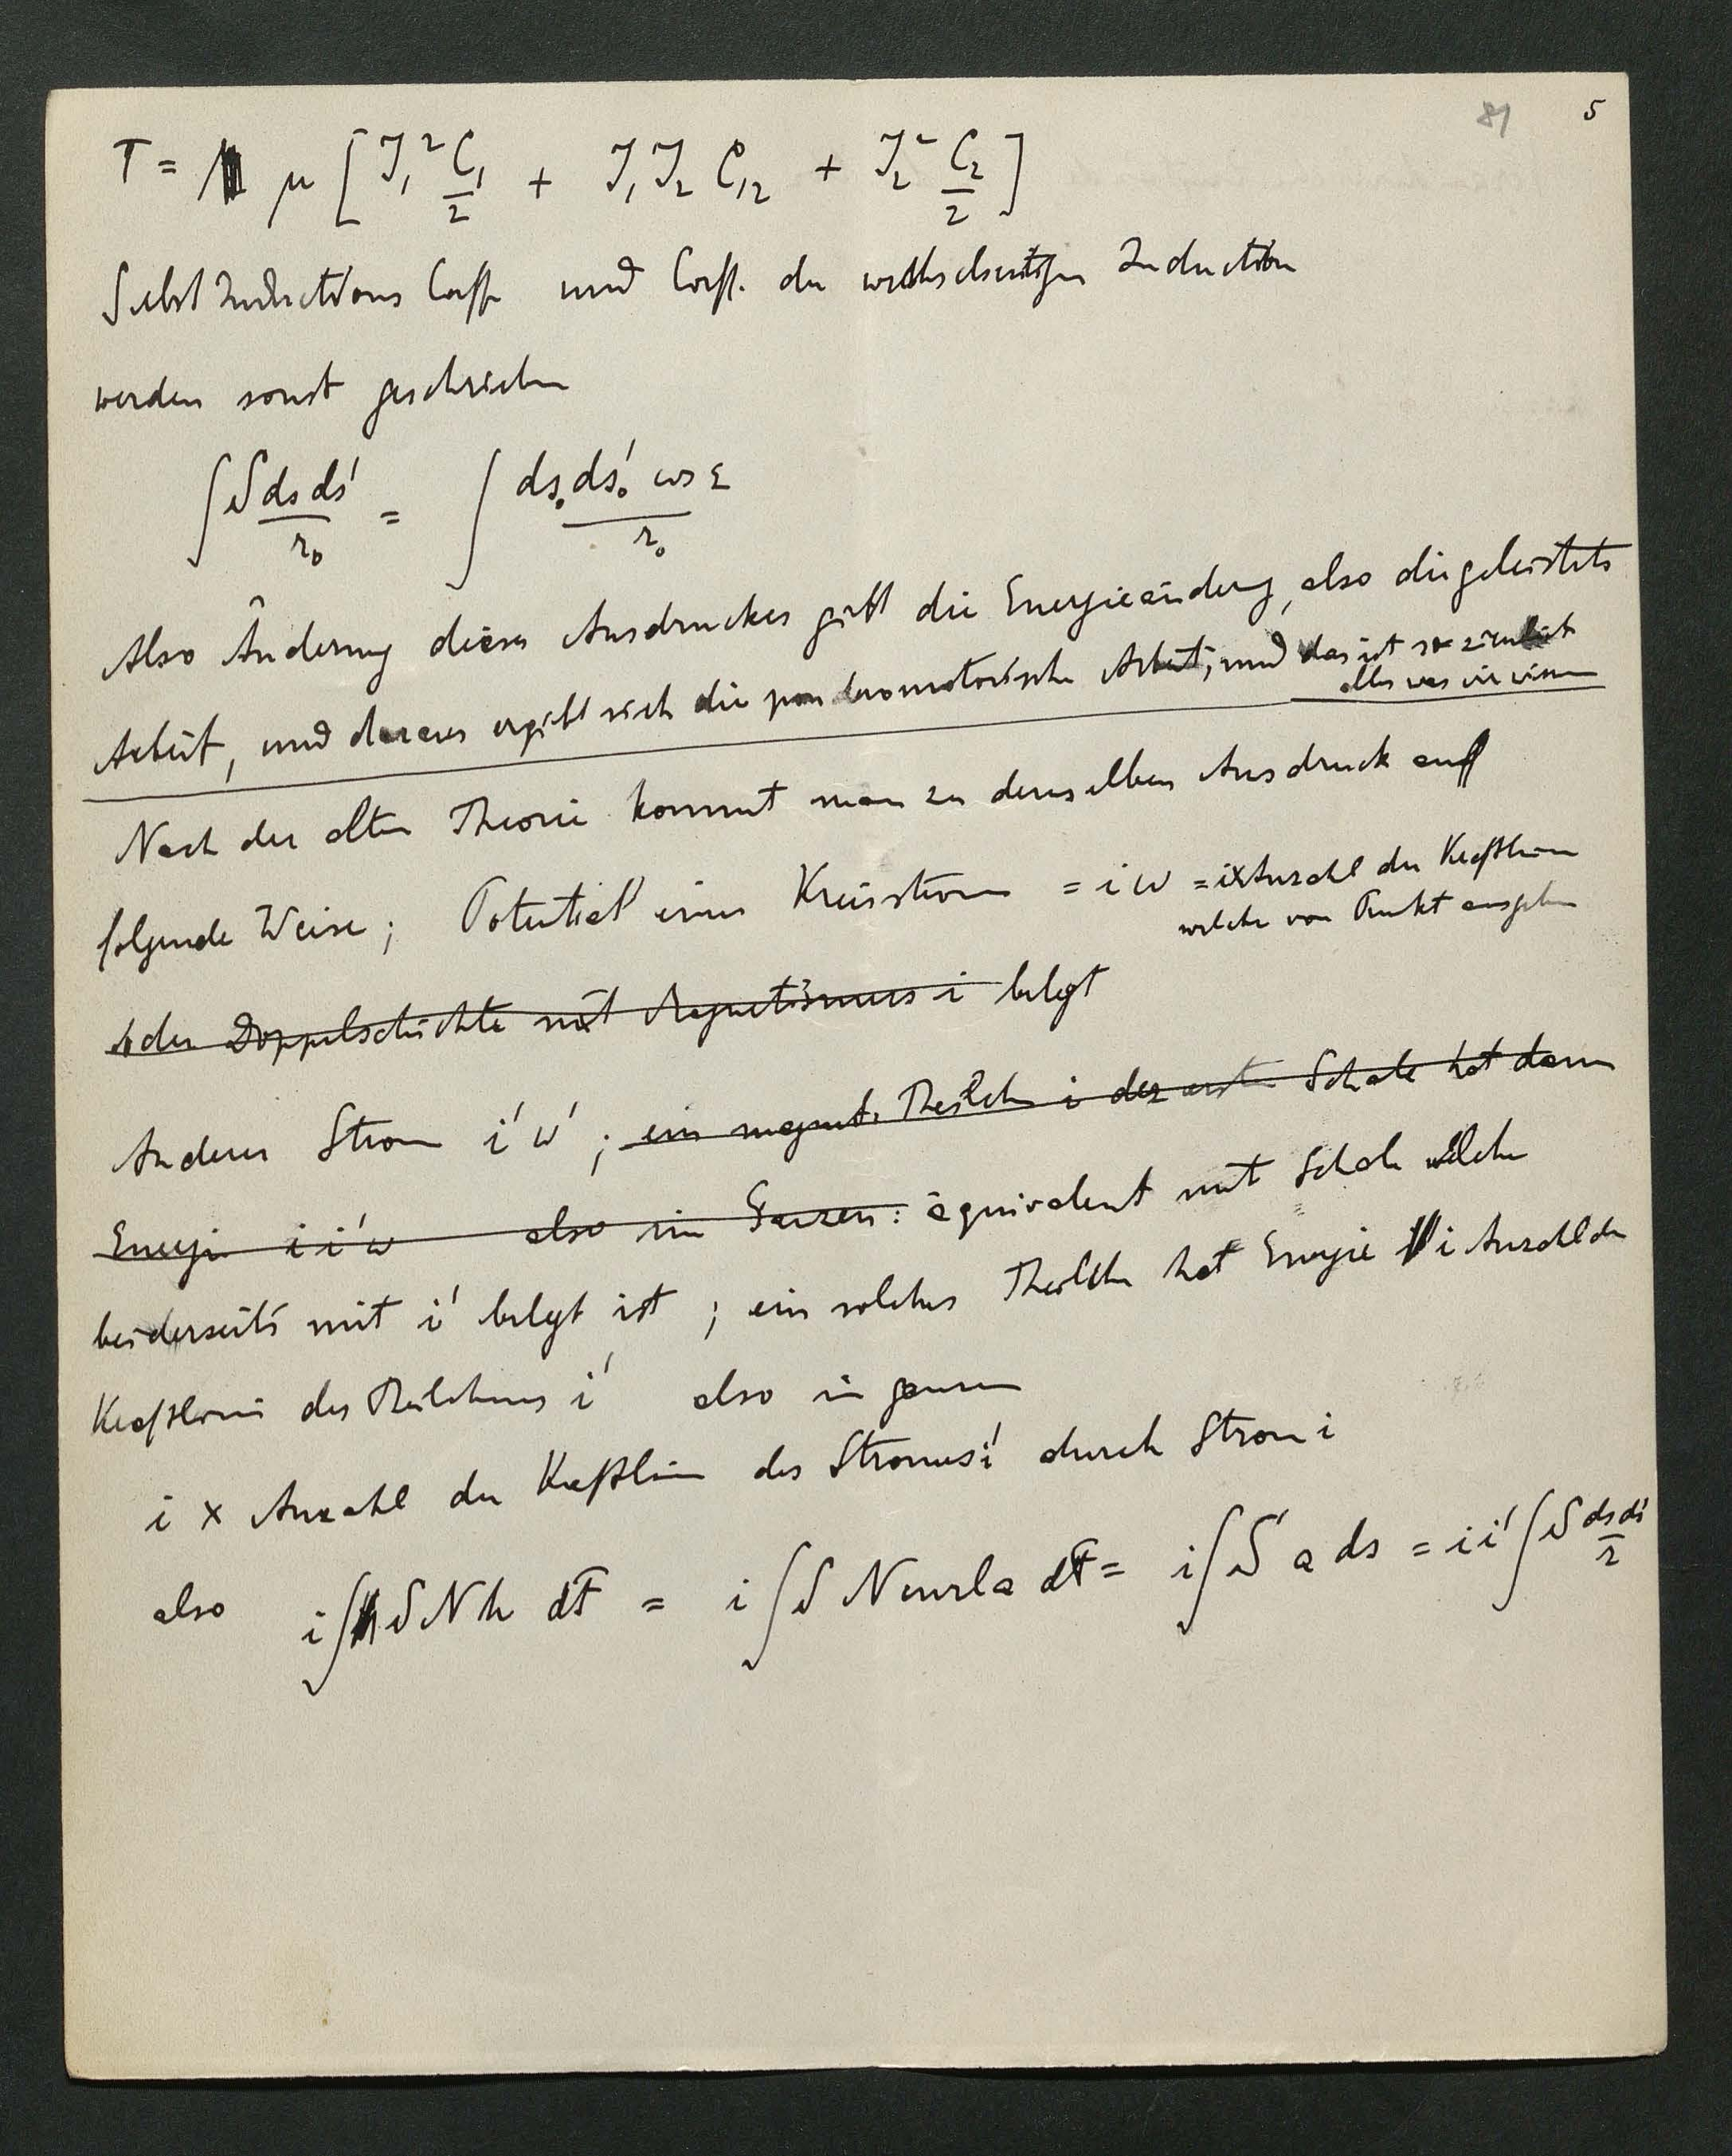 81 5
T = μ [ J₁² C₁/2 + J₁ J₂ C₁₂ + J₂² C₂/2 ]
Selbst Inductions Coeff und Coeff. der wechselseitigen Induction
werden sonst geschrieben
∫ S ds ds'/r₀ = ∫ ds₀ ds'₀ cos ε / r₀
Also Änderung dieses Ausdruckes gibt die Energieänderung, also die geleistete
Arbeit, und daraus ergibt sich die ponderomotorische Arbeit, und das ist so ziemlich
alles was wir wissen
Nach der alten Theorie kommt man zu demselben Ausdruck auf
folgende Weise; Potential eines Kreisstroms = i w = i x Anzahl der Kraftlinien
welche von Punkt ausgehen
oder Doppelschichte mit Magnetismus i belegt
Anderer Strom i' w' ; ein magnet. Theilchen i der ersten Schale hat dann
Energie i i' w also im Ganzen: äquivalent mit Schale welche
beiderseits mit i' belegt ist ; ein solches Theilchen hat Energie i Anzahl der
Kraftlinien des Theilchens i' also im ganzen
i x Anzahl der Kraftlinien des Stromes i' durch Strom i
also i ∫ S N h dF = i ∫ S N curl a dF = i ∫ S a ds = i i' ∫ S ds ds'/r